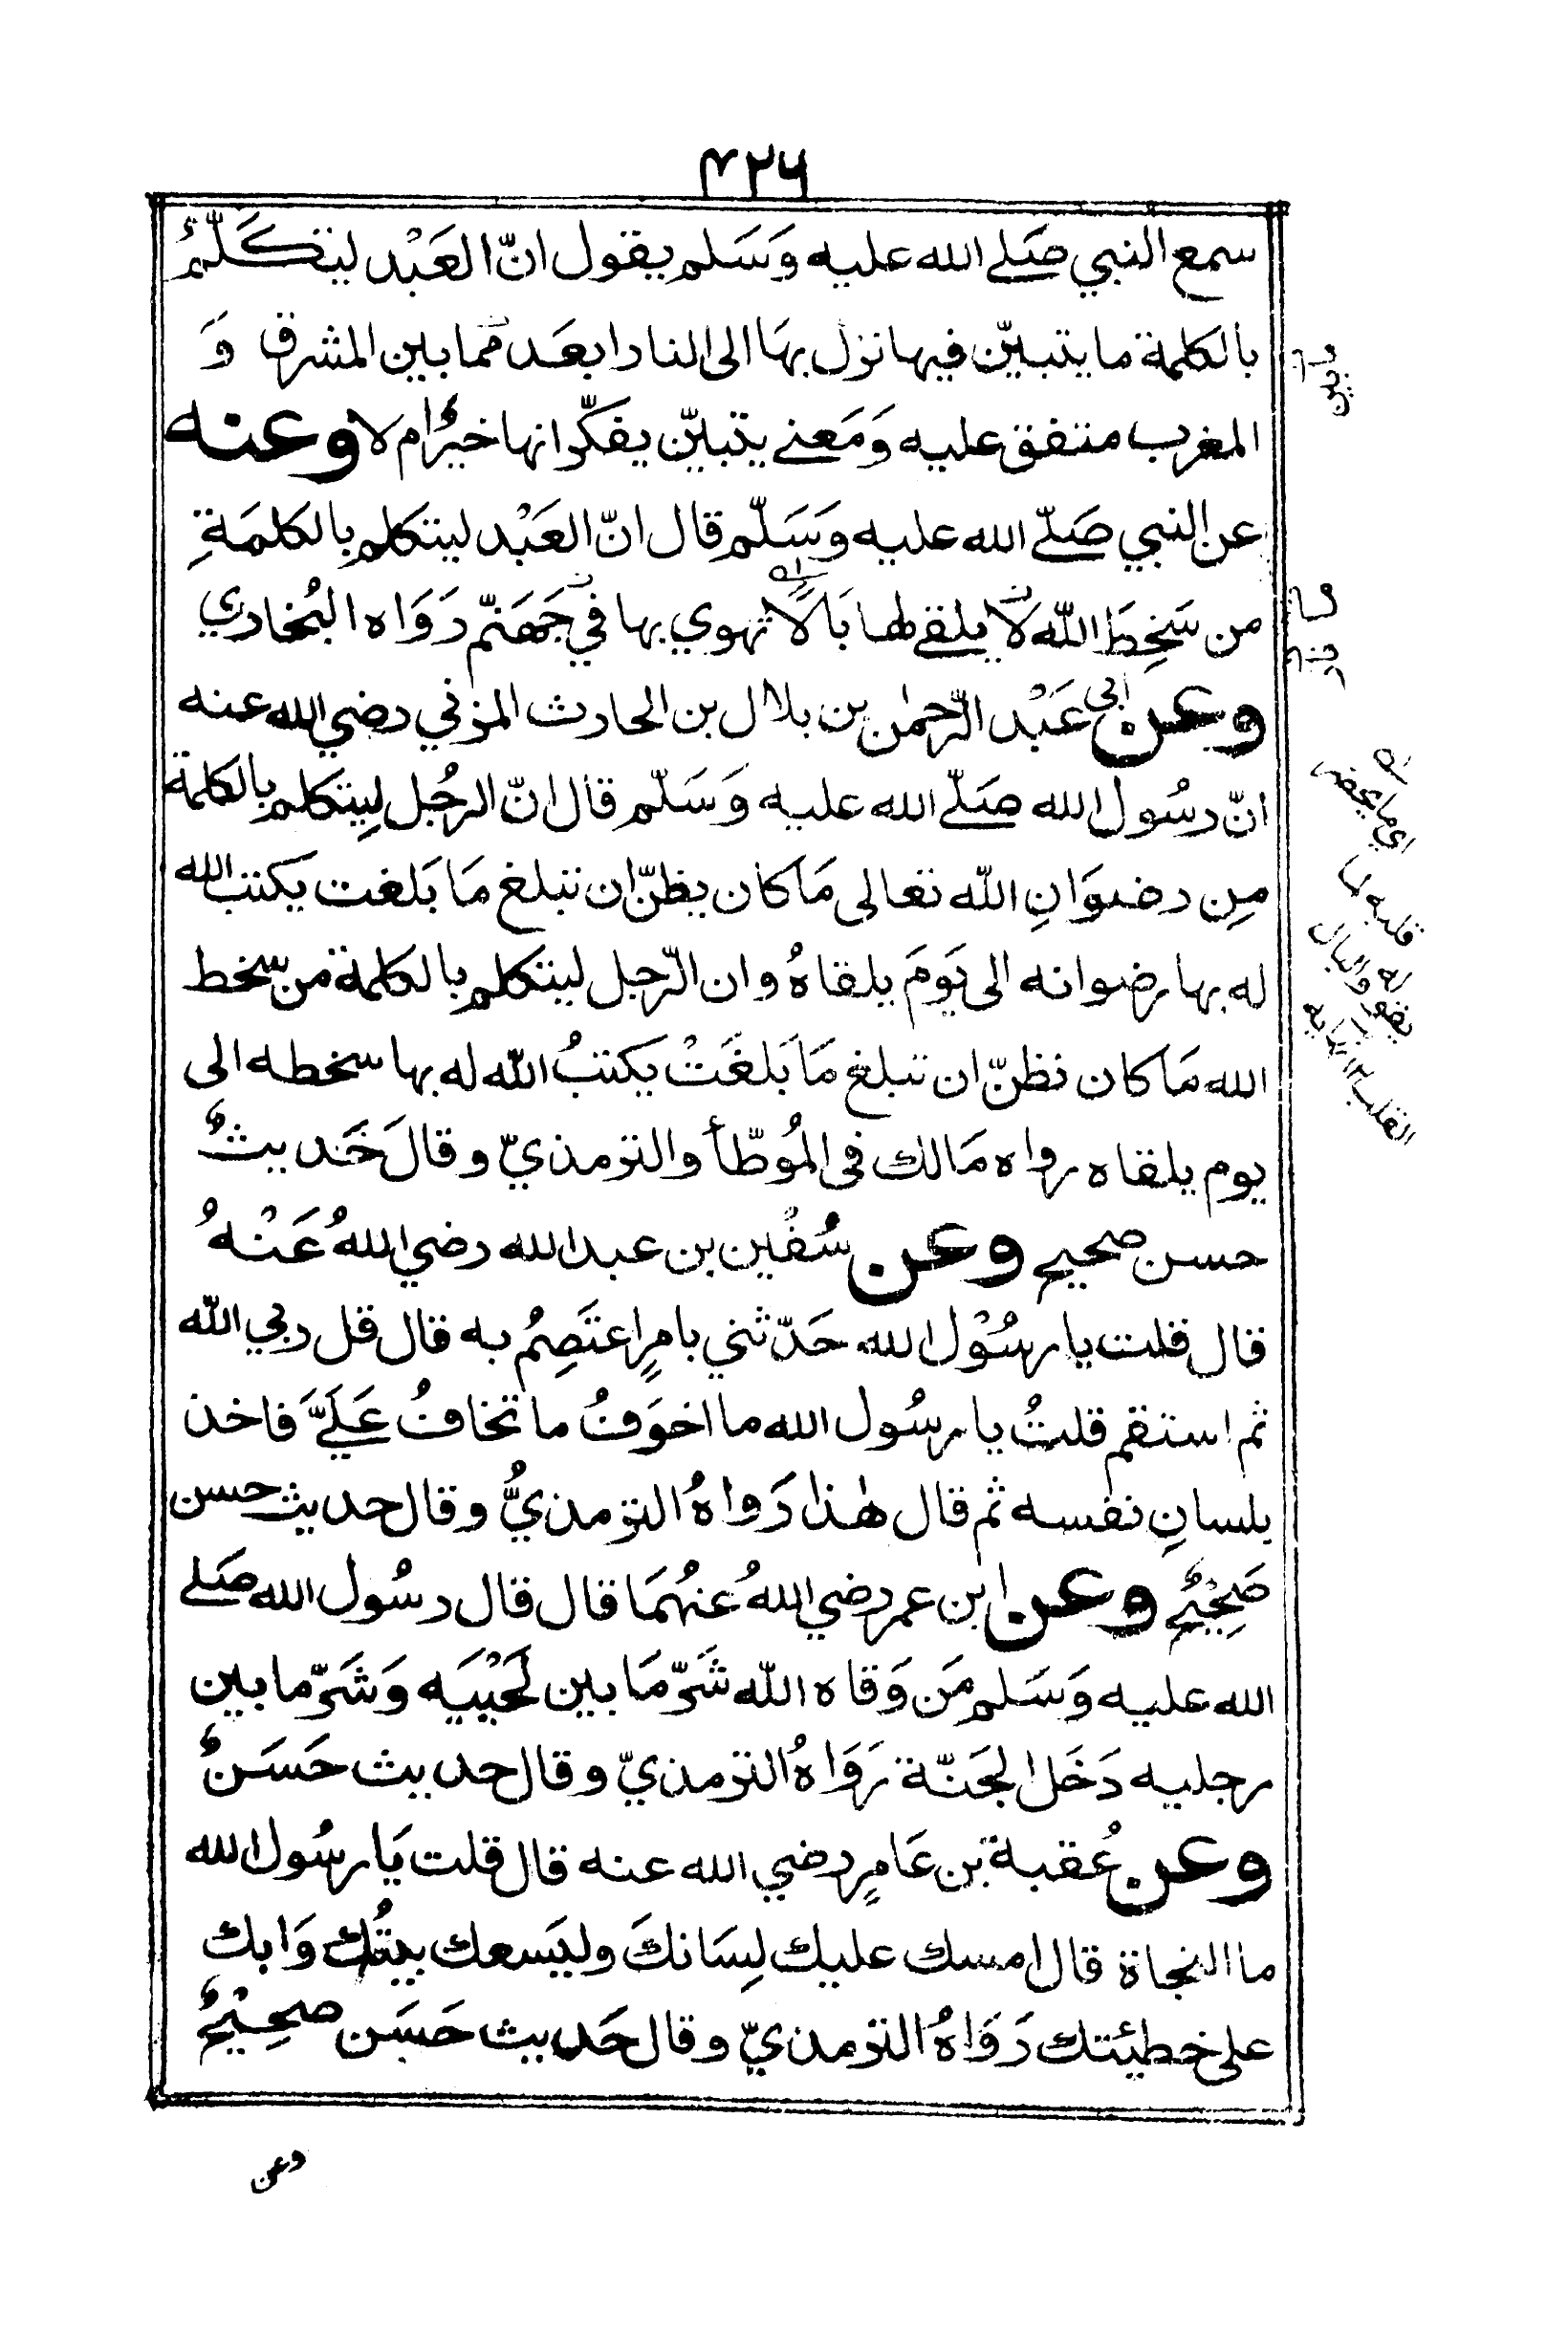 ٤٢٦
سمع النبي صَلے الله عليه وَسَلم يقول انّ العَبْد ليتكَلّمُ
بالكلمة ما يتبيّن فيها نزل بهَا الى النار ابعَد مّما بين المشرق وَ
المغرب متفق عليه وَمَعنے يتبيّن يفكّر انها خيرٌ ام لا وعنه
عن النبي صَلّے الله عليه وَسَلّم قال انّ العَبْد ليتكلم بالكلمَةِ
من سَخِطَ اللّٰه لا يلقے لها بَالًا تهوي بها في جَهَنّم رَوَاه البُخاري
وعن ابي عَبْد الرّحمٰن بن بلال بن الحارث المزني رضي الله عنه
انّ رسُول الله صَلّے الله عليه وَسَلّم قال انّ الرجُل ليِتكلم بالكلمة
مِن رضوَانِ اللّٰه تعالى مَا كان يظنّ ان تبلغ مَا بَلغت يكتب الله
له بها رضوانه الى يَومَ يلقاهُ وان الرّجل ليتكلم بالكلمة من سخط
الله مَا كان نظنّ ان تبلغ مَا بَلغَتْ يكتبُ اللّٰه له بها سخطه الى
يوم يلقاه رواه مَالك فى المُوطّأ والترمذيّ وقالَ حَديثٌ
حسن صحيح وعن سُفْين بن عبد الله رضي اللهُ عَنْهُ
قال قلت يا رسُوْل الله حَدّثني بامرٍ اعتَصِمُ به قال قل ربي اللّٰه
ثم استقم قلتُ يا رسُول الله ما اخوَفُ ما تخافُ عَلَےَّ فاخذ
بلسانِ نفسه ثم قال هٰذا رَواهُ الترمذيُّ وقال حديث حسن
صَحِيْحٌ وعن ابن عمر رضي اللهُ عنهُمَا قال قال رسُول الله صَلے
الله عليه وَسَلم مَن وَقاه اللّٰه شَرّ مَا بين لَحْيَيه وَشَرّ ما بين
رجليه دَخَل الجَنّة رَوَاهُ الترمذيّ وقال حديث حَسَنٌ
وعن عُقبة بن عَامرٍ رضي الله عنه قال قلت يَا رسُول الله
ما النجاة قال امسك عليك لِسَانكَ وليَسعك بيتُك وَابك
على خطيئتك رَوَاهُ الترمذيّ وقال حَديث حَسَن صحِيْحٌ
اي ما يحضر
قلبه لما
يقوله والبال
القلب ١٢
وعن